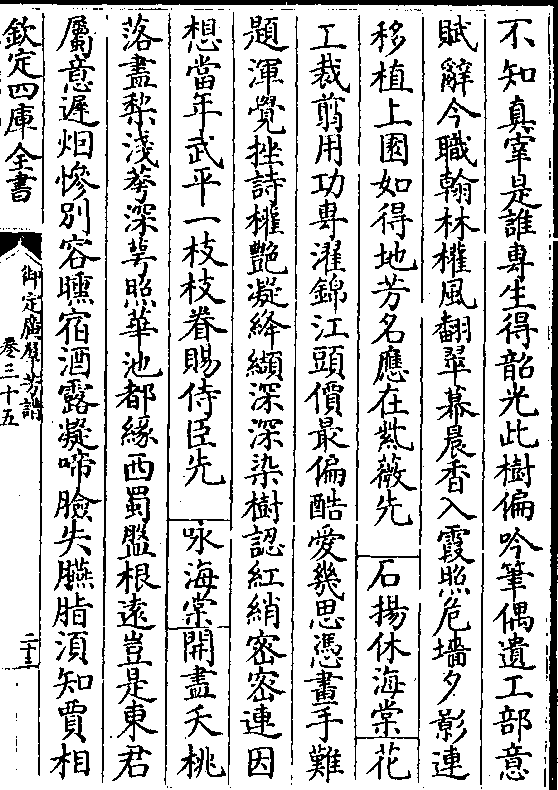 不知真宰是誰專生得韶光此樹偏吟筆偶遺工部意
賦辭今職翰林權風翻翠幕晨香入霞照危墻夕影連
移植上園如得地芳名應在紫薇先 石揚休海棠 花
工裁翦用功專濯錦江頭價最偏酷愛幾思憑畫手難
題渾覺挫詩權艷凝絳纈深深染樹認紅綃密密連因
想當年武平一枝枝眷賜侍臣先 咏海棠 開盡夭桃
落盡棃淺萼深萼照華池都緣西蜀盤根遠豈是東君
屬意遲烟慘別容曛宿酒露凝啼臉失臙脂須知賈相
欽定四庫全書
御定廣羣芳譜
卷三十五
二十三